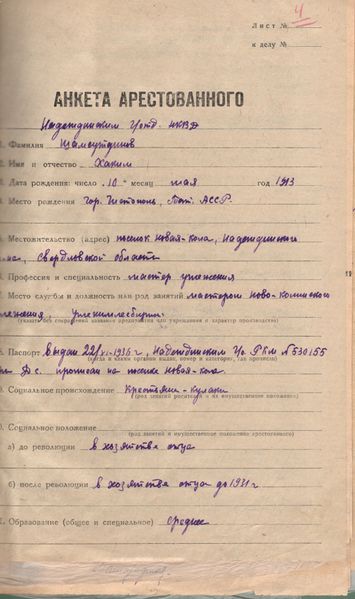 4
Лист №
к делу №
АНКЕТА АРЕСТОВАННОГО
Надеждинским НКВД
Фамилия Шамсутдинов
Имя и отчество Хаким
Дата рождения: число 10 месяц мая год 1913
Место рождения гор. Чистополь, Тат. АССР.
Местожительство (адрес) поселок Новая-Кола, Надеждинского
Свердловской области
Профессия и специальность мастер углежжения
Место службы и должность или род занятий мастером Ново-Колинского
углежжения,
(указать без сокращения название предприятия или учреждения и характер производства)
Паспорт выдан 22/XI-1936 г, Надеждинским РКМ № 530155
(когда и каким органом выдан, номер и категория, где прописан)
прописан на поселке Новая-Кола
Социальное происхождение Крестьяне-кулаки
(род занятий родителей и их имущественное положение)
Социальное положение
(род занятий и имущественное положение арестованного)
а) до революции в хозяйстве отца
б) после революции в хозяйстве отца до 1931 г
Образование (общее и специальное) среднее